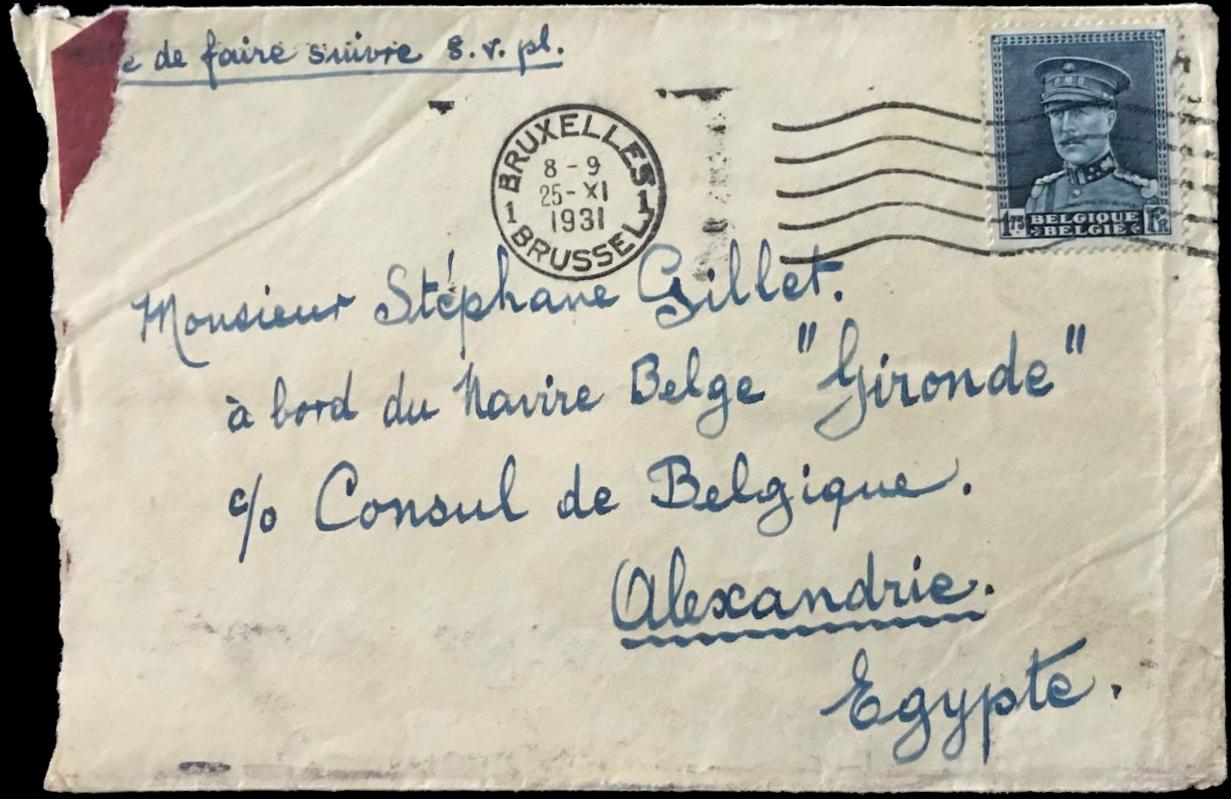 de faire suivre s. v. pl.
BRUXELLES
8-9
25-XI
1931
1 1
BRUSSEL
1F75 FR
BELGIQUE
BELGIË
Monsieur Stéphane Gillet.
à bord du Navire Belge "Gironde"
c/o Consul de Belgique.
Alexandrie.
Egypte.